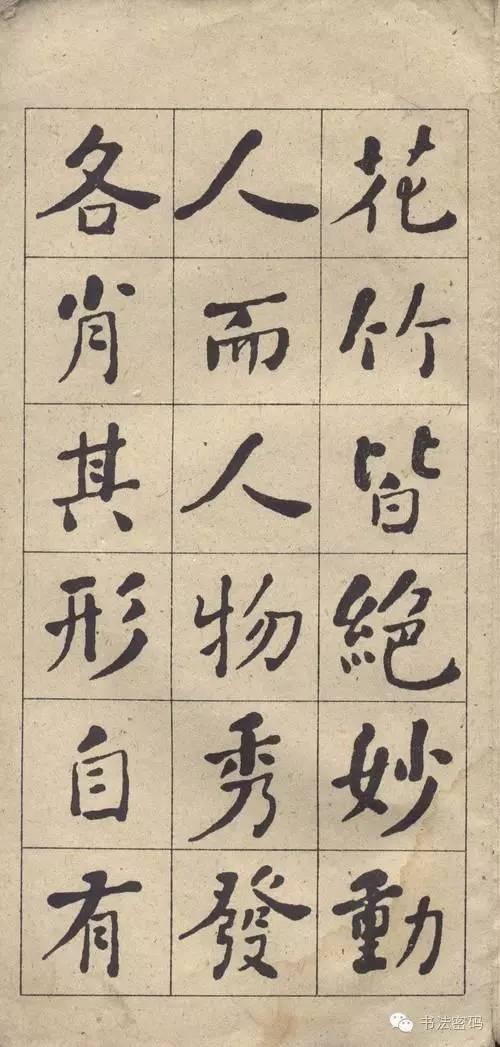 花竹皆絶妙動
人而人物秀發
各肖其形自有
书法密码